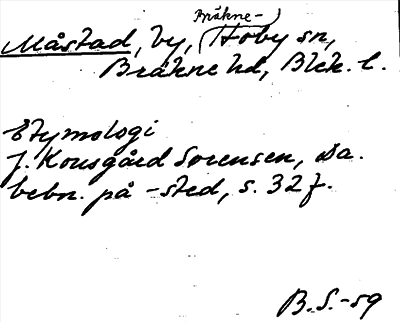 Bräkne-
Måstad, by, (Hoby sn,
Bräkne hd, Blek. l.
Etymologi
J. Kousgård Sørensen, Da.
bebn. på -sted, s. 32 f.
B.S.-59